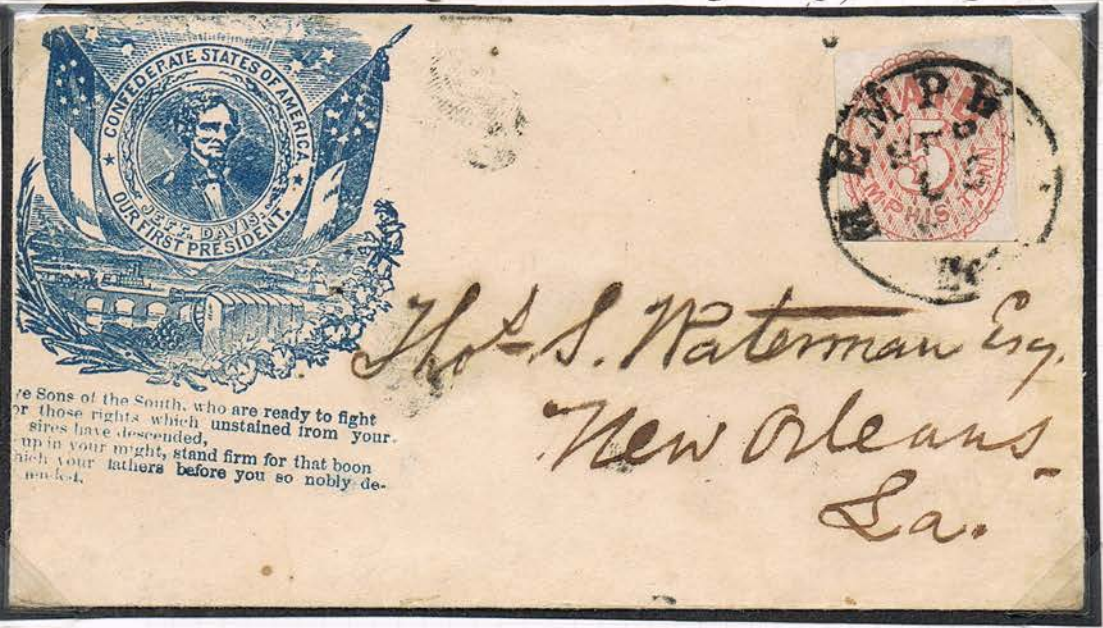 CONFEDERATE STATES OF AMERICA
JEFF. DAVIS.
OUR FIRST PRESIDENT.
Sons of the South, who are ready to fight
those rights which unstained from your
sires have descended,
up in your might, stand firm for that boon
your fathers before you so nobly de-
MEMPH
5
Thos. S. Waterman Esq.
New Orleans
La.